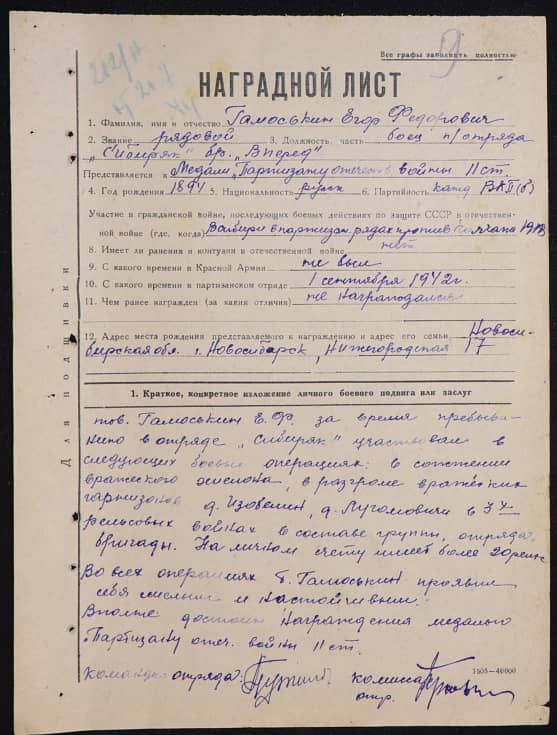 Все графы заполнять полностью
9
НАГРАДНОЙ ЛИСТ
1. Фамилия, имя и отчество Гамоськин Егор Федорович
2. Звание рядовой 3. Должность, часть боец п/отряда
„Сибиряк" бр. „Вперед"
Представляется к Медали „Партизану отечеств. войны II ст.
4. Год рождения 1894 5. Национальность русск 6. Партийность канд ВКП(б)
Участие в гражданской войне, последующих боевых действиях по защите СССР в отечествен-
ной войне (где, когда) В сибири в партизан. рядах против Колчака 1918
8. Имеет ли ранения и контузии в отечественной войне нет
9. С какого времени в Красной Армии не был
10. С какого времени в партизанском отряде 1 сентября 1942 г.
11. Чем ранее награжден (за какия отличия) не награждался
12. Адрес места рождения представляемого к награждению и адрес его семьи Новоси-
бирская обл. г. Новосибирск, Нижегородская 17
Для подшивки
1. Краткое, конкретное изложение личного боевого подвига или заслуг
тов. Гамоськин Е.Ф. за время пребыва-
ния в отряде „Сибиряк" участвовал в
следующих боевых операциях: в сожжении
вражеского, в разгроме вражеских
гарнизонов д. Изобелин, д. Лугомовичи в 3х
рельсовых войнах в составе группы, отряда,
бригады. На личном счету имеет более 20 рельс
Во всех операциях т. Гамоськин проявил
себя смелым и настойчивым.
Вполне достоин награждения медалью
Партизану отеч. войны II ст.
Команди. отряда: комиссар
отр.
1505—40000